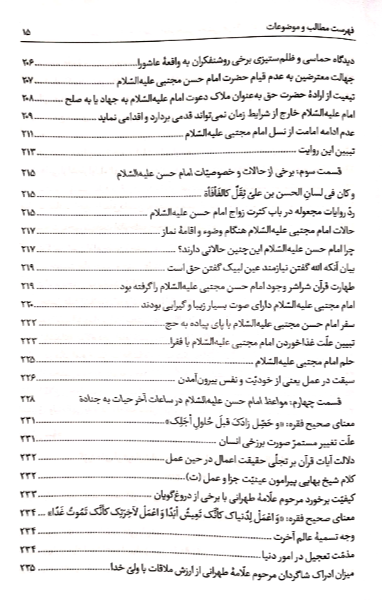 فهرست مطالب و موضوعات ۱۵
دیدگاه حماسی و ظلم‌ستیزی برخی روشنفکران به واقعهٔ عاشورا ۲۰۶
جهالت معترضین به عدم قیام حضرت امام حسن مجتبی علیه‌السّلام ۲۰۷
تبعیت از ارادهٔ حضرت حق به‌عنوان ملاک دعوت امام علیه‌السّلام به جهاد یا به صلح ۲۰۸
امام علیه‌السّلام خارج از شرایط زمان نمی‌تواند قدمی بردارد و اقدامی نماید ۲۰۹
عدم ادامه امامت از نسل امام مجتبی علیه‌السّلام ۲۱۱
تبیین این روایت ۲۱۳
قسمت سوم: برخی از حالات و خصوصیّات امام حسن علیه‌السّلام ۲۱۵
و کان فی لسانِ الحسن بن علیٍّ ثِقَلٌ کالفَأفَأة ۲۱۵
ردّ روایات مجعوله در باب کثرت زواج امام حسن علیه‌السّلام ۲۱۵
حالات امام مجتبی علیه‌السّلام هنگام وضوء و اقامهٔ نماز ۲۱۷
چرا امام حسن علیه‌السّلام این‌چنین حالاتی دارند؟ ۲۱۷
بیان آنکه اللَه گفتن نیازمند عین لبیک گفتن حق است ۲۱۹
طهارت قرآن شراشر وجود امام حسن علیه‌السّلام را گرفته بود ۲۱۹
امام مجتبی علیه‌السّلام دارای صوت بسیار زیبا و گیرایی بودند ۲۲۰
سفر امام حسن مجتبی علیه‌السّلام با پای پیاده به حج ۲۲۲
تبیین علّت غذاخوردن امام مجتبی علیه‌السّلام با فقرا ۲۲۳
حلم امام مجتبی علیه‌السّلام ۲۲۵
سبقت در عمل یعنی از خودیّت و نفس بیرون‌آمدن ۲۲۶
قسمت چهارم: مواعظ امام حسن علیه‌السّلام در ساعات آخر حیات به جنادة ۲۲۸
معنای صحیح فقره: «و حَصِّل زادَکَ قبلَ حُلولِ أجَلِک» ۲۳۱
علّت تغییر مستمرّ صورت برزخی انسان ۲۳۱
دلالت آیات قرآن بر تجلّی حقیقت اعمال در حین عمل ۲۳۲
کلام شیخ بهایی پیرامون عینیّت جزا و عمل (ت) ۲۳۲
کیفیّت برخورد مرحوم علّامهٔ طهرانی با برخی از دروغ‌گویان ۲۳۳
معنای صحیح فقره: «وَ اعْمَلْ لِدُنیاکَ کَأنَّکَ تَعیشُ أبَدًا وَ اعْمَلْ لِآخِرَتِکَ کَأنَّکَ تَمُوتُ غَدًا» ۲۳۴
وجه تسمیهٔ عالم آخرت ۲۳۴
مذمّت تعجیل در امور دنیا ۲۳۴
میزان ادراک شاگردان مرحوم علّامهٔ طهرانی از ارزش ملاقات با ولیّ خدا ۲۳۵